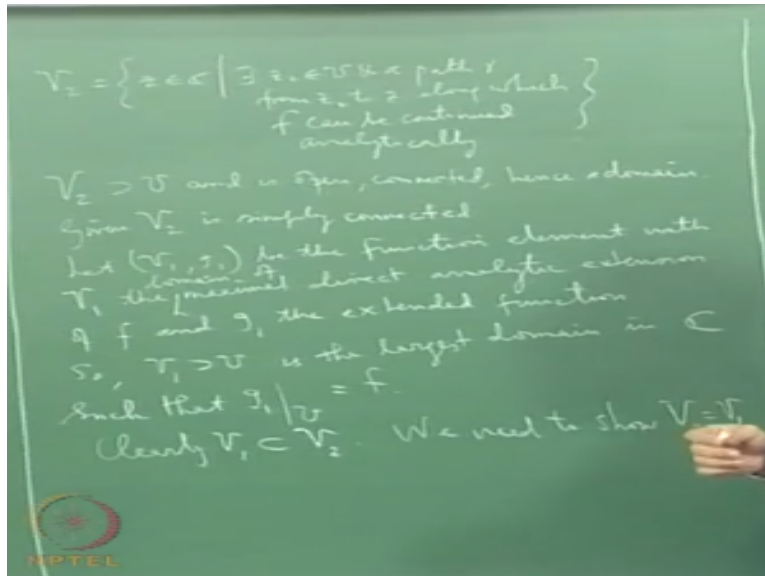 V₂ = { z ∈ ℂ | ∃ z₀ ∈ U & a path γ
from z₀ to z along which
f can be continued
analytically }
V₂ ⊃ U and is open, connected, hence a domain.
Given V₂ is simply connected
Let (V₁, g₁) be the function element with
domain of
V₁ the maximal direct analytic extension
of f and g₁ the extended function
So, V₁ ⊃ U is the largest domain in ℂ
such that g₁|U = f.
Clearly V₁ ⊂ V₂. We need to show V₂ = V₁
NPTEL